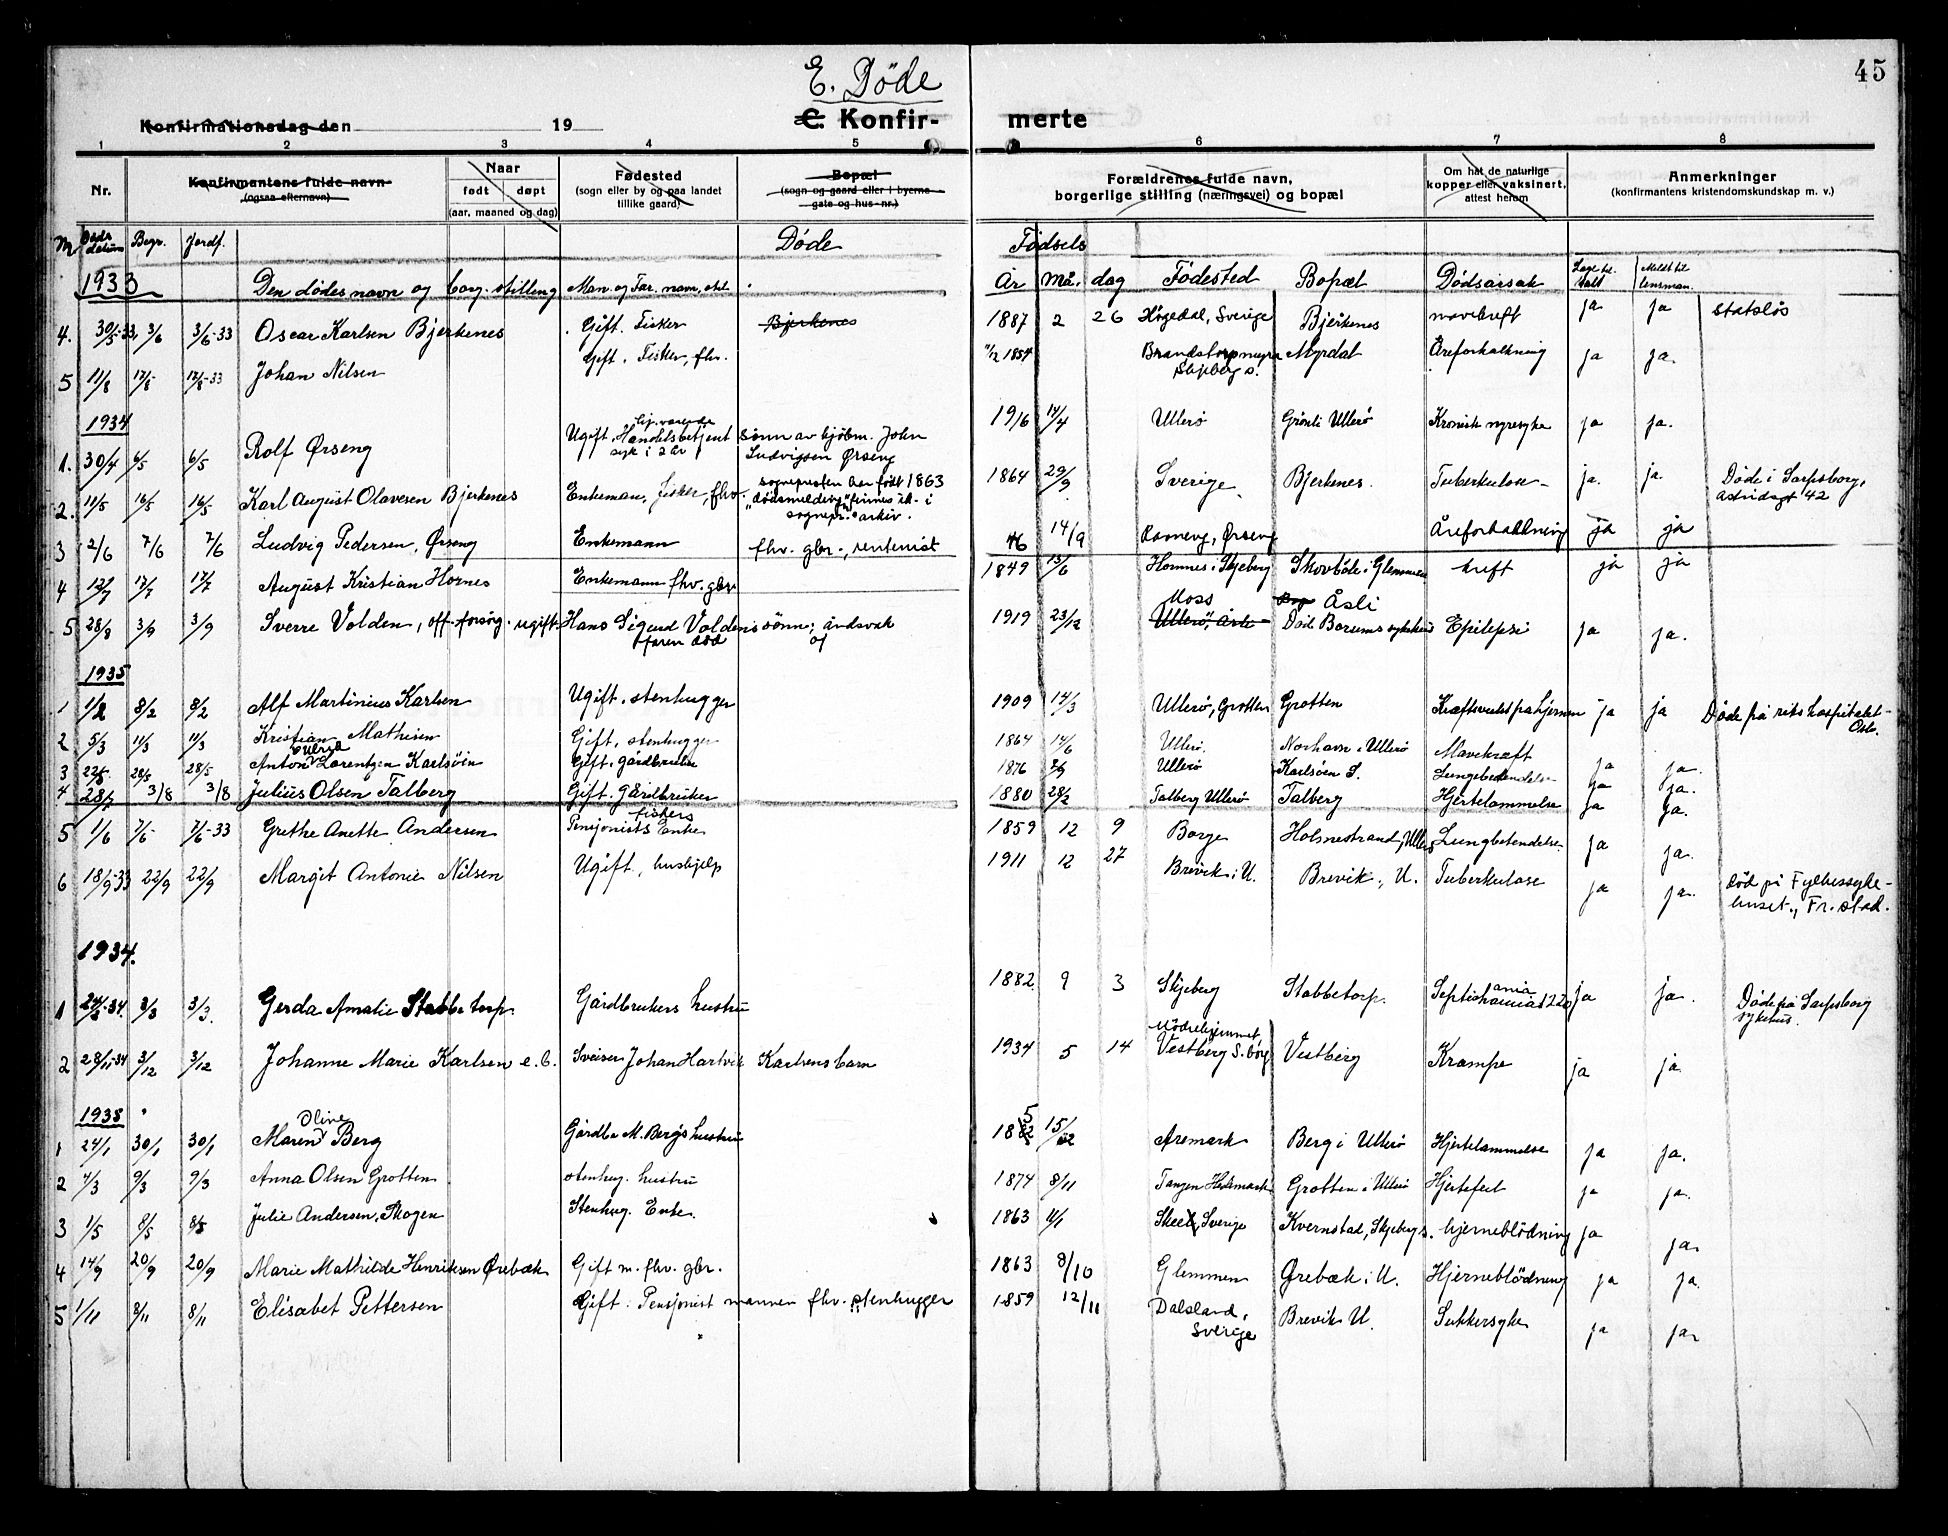 45
E. Døde
Konfirmationsdag den 19
C. Konfir- merte
1 2 3 4 5 6 7 8
Nr.
Konfirmantens fulde navn (ogsaa efternavn)
Naar født døpt (aar, maaned og dag)
Fødested (sogn eller by og paa landet tillike gaard)
Bopæl (sogn og gaard eller i byerne gate og hus-nr.)
Forældrenes fulde navn, borgerlige stilling (næringsvei) og bopæl
Om hat de naturlige kopper eller vaksinert, attest herom
Anmerkninger (konfirmantens kristendomskundskap m. v.)
M Døds datum Begr. Jordf. Døde Fødsels
1933 Den dødes navn og borg. stilling Man. og Far. navn, etct. År Må. dag Fødested Bopæl Dødsårsak Meldt til lensman.
4. 30/5-33 3/6 3/6-33 Oscar Karlsen Bjerkenes Gift. Fisker Bjerkenes 1887 2 26 Högedal, Sverige Bjerkenes mavekreft ja ja statsløs
5 11/8 17/8 17/8-33 Johan Nilsen Gift. Fisker, fhv. 1854 Skjeberg s. Myrdal Åreforkalkning ja ja.
1934
1. 30/4 6/5 6/5 Rolf Ørseng Ugift, Handelsbetjent syk i 2 år sønn av kjøbm. John Ludvigsen Ørseng 1916 14/4 Ullerø Grønli Ullerø Kronisk nyresyke ja ja.
2. 11/5 16/5 16/5 Karl August Olavesen Bjerkenes Enkeman, fisker, fhv. sognepresten har født 1863 "dødsmelding" finnes ik. i sognepr. arkiv. 1864 29/9 Sverige Bjerkenes. Tuberkulose ja. ja. Døde i Sarpsborg, 42
3 2/6 7/6 7/6 Ludvig Pedersen, Ørseng Enkemann fhv. gbr., rentenist 46 14/9 Ørseng Åreforkalkning ja ja
4 12/7 17/7 17/7 August Kristian Hornes Enkemann fhv. gbr 1849 13/6 Hornnes i Skjeberg Skovbøle i Glemmen kreft ja ja
5 28/8 3/9 3/9 Sverre Volden, off. forsørg. ugift. Hans Sigurd Voldens sønn; åndsvak faren død 1919 23/12 Moss Ullerø, Åsli Åsli Død Bærums sykehus Epilepsi ja ja.
1935
1 1/2 8/2 8/2 Alf Martinius Karlsen Ugift. stenhugger 1909 14/3 Ullerø, Grotten Grotten ja ja Døde på rikshospitalet Oslo.
2 5/3 11/3 11/3 Kristian Mathisen Gift, stenhugger 1864 14/6 Ullerø. Norhavn i Ullerø Mavekræft ja ja.
3 22/5 28/5 28/5 Anton Lorentzen Karlsöin Gift. gårdbruker 1876 Ullerø Karlsöen S. Lungebetendelse ja ja.
4 28/7 3/8 3/8 Julius Olsen Talberg Gift. Gårdbruker 1880 28/2 Talberg Ullerø Talberg Hjertelammelse ja ja.
5 1/6 7/6 7/6-33 Grethe Anette Andersen Pensjonists fiskers Enke 1859 12 9 Borge Holmestrand, Ullerø Lungbetendelse. ja ja.
6 18/9-33 22/9 22/9 Margit Antonie Nilsen Ugift, hushjelp 1911 12 27 Brevik i U. Brevik i, U. Tuberkulose ja ja. død på Fylkessyke- huset, Fr. stad.
1934.
1 24/2-34. 3/3 3/3. Gerda Amalie Stabbetorp. Gårdbrukers hustru 1882 9 3 Skjeberg Stabbetorp. ja ja. Døde på Sarpsborg sykehus.
2 28/11-34 3/12 3/12 Johanne Marie Karlsen e. b. Sveiser Johan Hartvik Karlsens barn 1934 5 14 Mödrehjemmet Vestberg S.borg Vestberg Krampe ja ja
1935
1 24/1 30/1 30/1 Maren Olive Berg Gårdbr M. Bergs hustru Aremark Berg i Ullerø Hjertelammelse ja ja.
2 4/3 9/3 9/3 Anna Olsen Grotten stenhug. hustru 1874 8/11 Tangen Hedemark Grotten i Ullerø Hjertefeil ja ja.
3 1/5 8/5 8/5 Julie Andersen, Skogen Stenhug. Enke. 1863 11/1 Skee, Sverige Kvernstad, Skjeberg s. hjerneblödning ja ja.
4 14/9 20/9 20/9 Marie Mathilde Henriksen Ørebæk Gift m. fhv. gbr. 1863 8/10 Glemmen Ørebæk i U. Hjerneblödning ja ja.
5 1/11 8/11 8/11 Elisabet Pettersen Gift. Pensjonist mannen fhv. stenhugger 1859 12/11 Dalsland, Sverige Brevik U. Sukkersyke ja ja